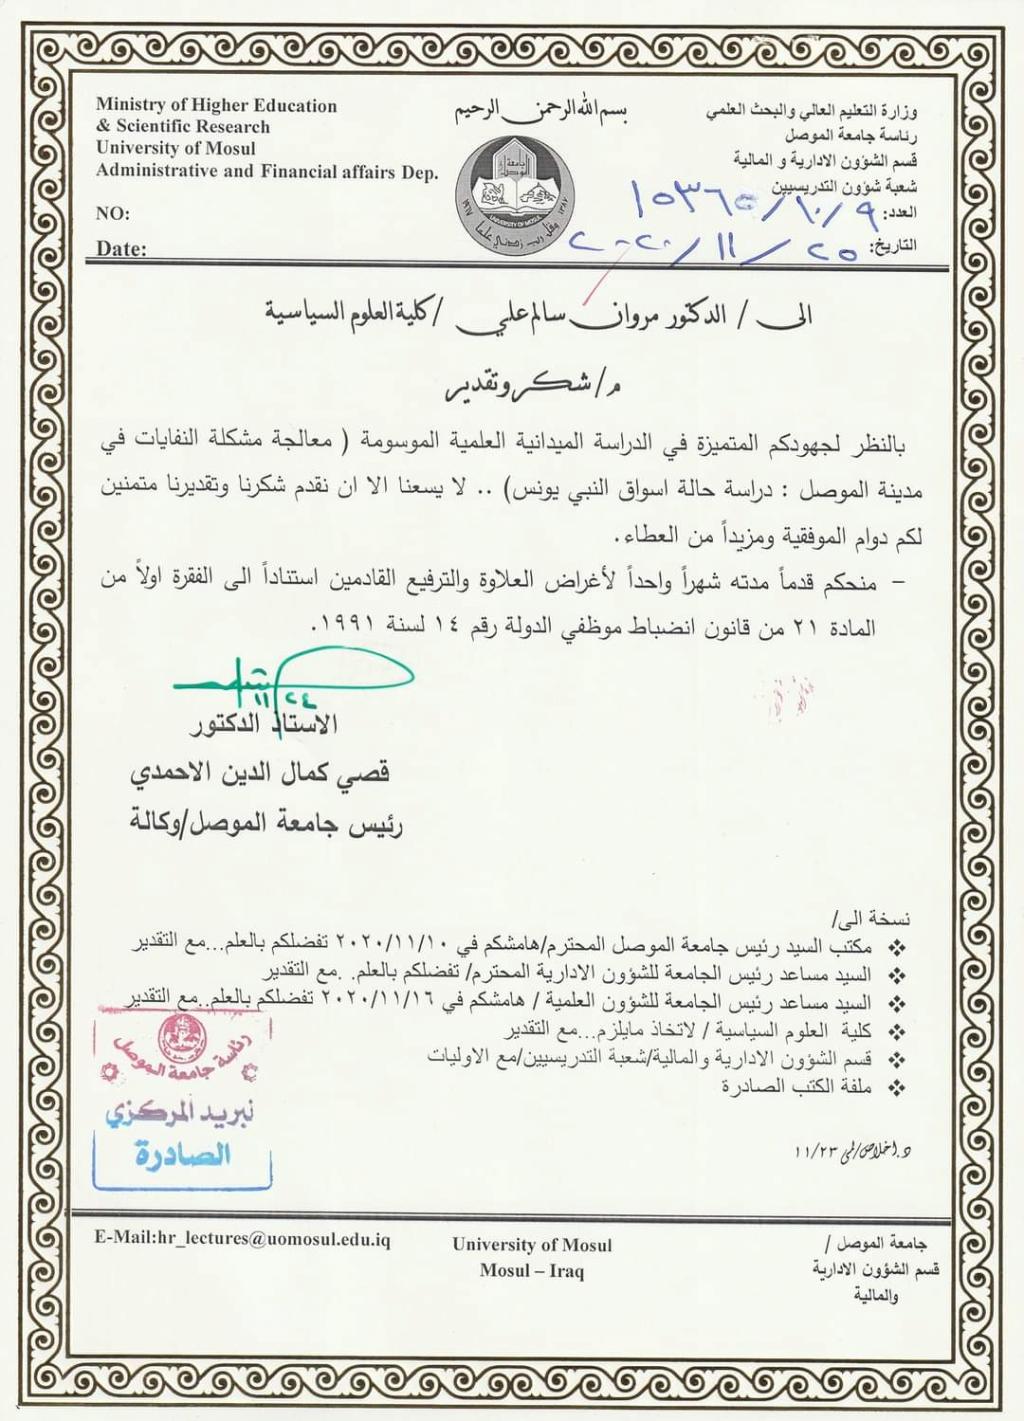 Ministry of Higher Education
& Scientific Research
University of Mosul
Administrative and Financial affairs Dep.
NO:
Date:
بسم الله الرحمن الرحيم
جامعة الموصل
UNIVERSITY OF MOSUL
وقل رب زدني علما
١٩٦٧
١٣٨٧
وزارة التعليم العالي والبحث العلمي
رئاسة جامعة الموصل
قسم الشؤون الادارية و المالية
شعبة شؤون التدريسيين
العدد: ٩/١٠/١٥٣٦٥
التاريخ: ٢٥/١١/٢٠٢٠
الى / الدكتور مروان سالم علي / كلية العلوم السياسية
م/ شكر وتقدير
بالنظر لجهودكم المتميزة في الدراسة الميدانية العلمية الموسومة ( معالجة مشكلة النفايات في
مدينة الموصل : دراسة حالة اسواق النبي يونس) .. لا يسعنا الا ان نقدم شكرنا وتقديرنا متمنين
لكم دوام الموفقية ومزيداً من العطاء.
– منحكم قدماً مدته شهراً واحداً لأغراض العلاوة والترفيع القادمين استناداً الى الفقرة اولاً من
المادة ٢١ من قانون انضباط موظفي الدولة رقم ١٤ لسنة ١٩٩١.
١١ ٢٤
الاستاذ الدكتور
قصي كمال الدين الاحمدي
رئيس جامعة الموصل/وكالة
نسخة الى/
❖ مكتب السيد رئيس جامعة الموصل المحترم/هامشكم في ٢٠٢٠/١١/١٠ تفضلكم بالعلم...مع التقدير
❖ السيد مساعد رئيس الجامعة للشؤون الادارية المحترم/ تفضلكم بالعلم. .مع التقدير
❖ السيد مساعد رئيس الجامعة للشؤون العلمية / هامشكم في ٢٠٢٠/١١/١٦ تفضلكم بالعلم..مع التقدير
❖ كلية العلوم السياسية / لاتخاذ مايلزم...مع التقدير
❖ قسم الشؤون الادارية والمالية/شعبة التدريسيين/مع الاوليات
❖ ملفة الكتب الصادرة
رئاسة جامعة الموصل
نبريد المركزي
الصادرة
د.اخلاص/ ١١/٢٣
E-Mail:hr_lectures@uomosul.edu.iq
University of Mosul
Mosul – Iraq
جامعة الموصل /
قسم الشؤون الادارية
والمالية